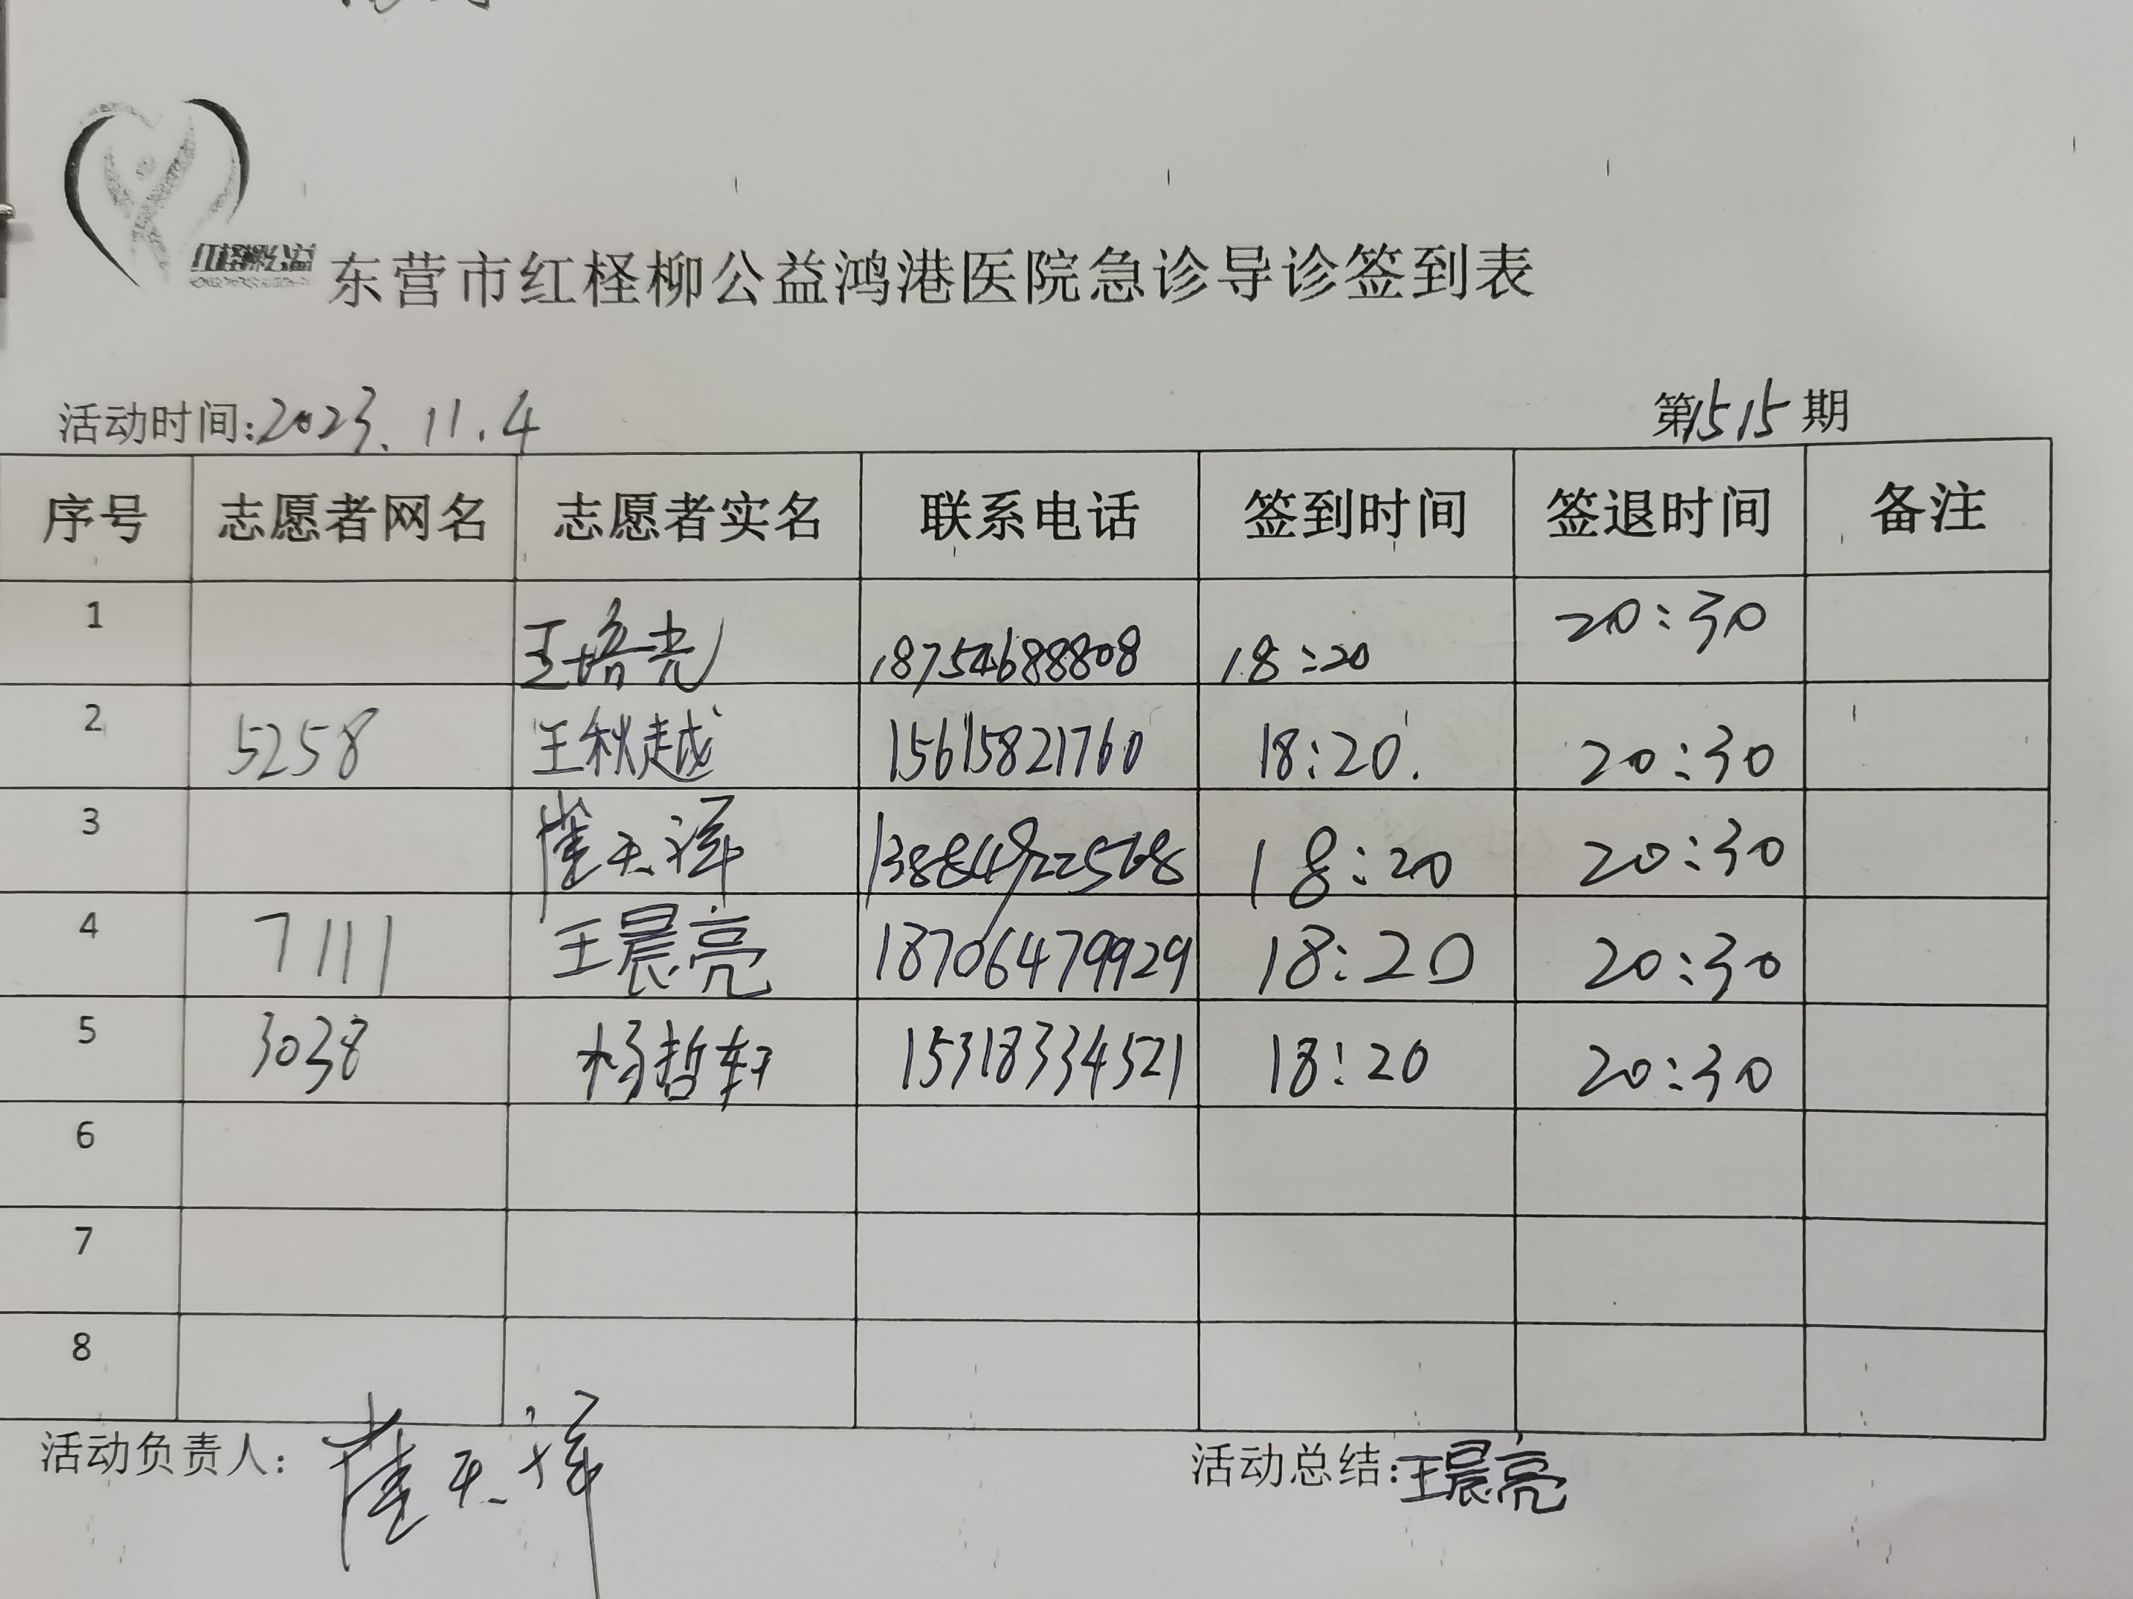 红柽柳公益
东营市红柽柳公益鸿港医院急诊导诊签到表
活动时间:2023.11.4 第1515期
序号 志愿者网名 志愿者实名 联系电话 签到时间 签退时间 备注
1 王培光 18754688808 18:20 20:30
2 5258 王秋越 15615821760 18:20. 20:30
3 崔天祥 13884922568 18:20 20:30
4 7111 王晨亮 18706479929 18:20 20:30
5 3038 杨哲轩 15318334521 18:20 20:30
6
7
8
活动负责人: 崔天祥 活动总结:王晨亮